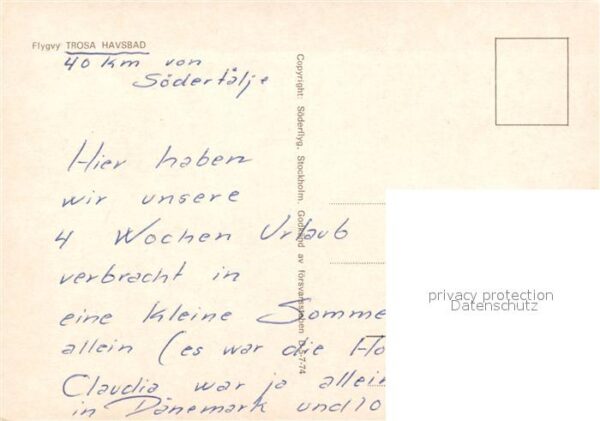 Flygvy TROSA HAVSBAD
40 km von
Södertälje
Hier haben
wir unsere
4 Wochen Urlaub
verbracht in
eine kleine Somme
allein (es war die
Claudia war ja allein
in Dänemark und 10
Copyright: Söderflyg, Stockholm. Godkänd av försvarsstaben D 5-7-74
privacy protection
Datenschutz